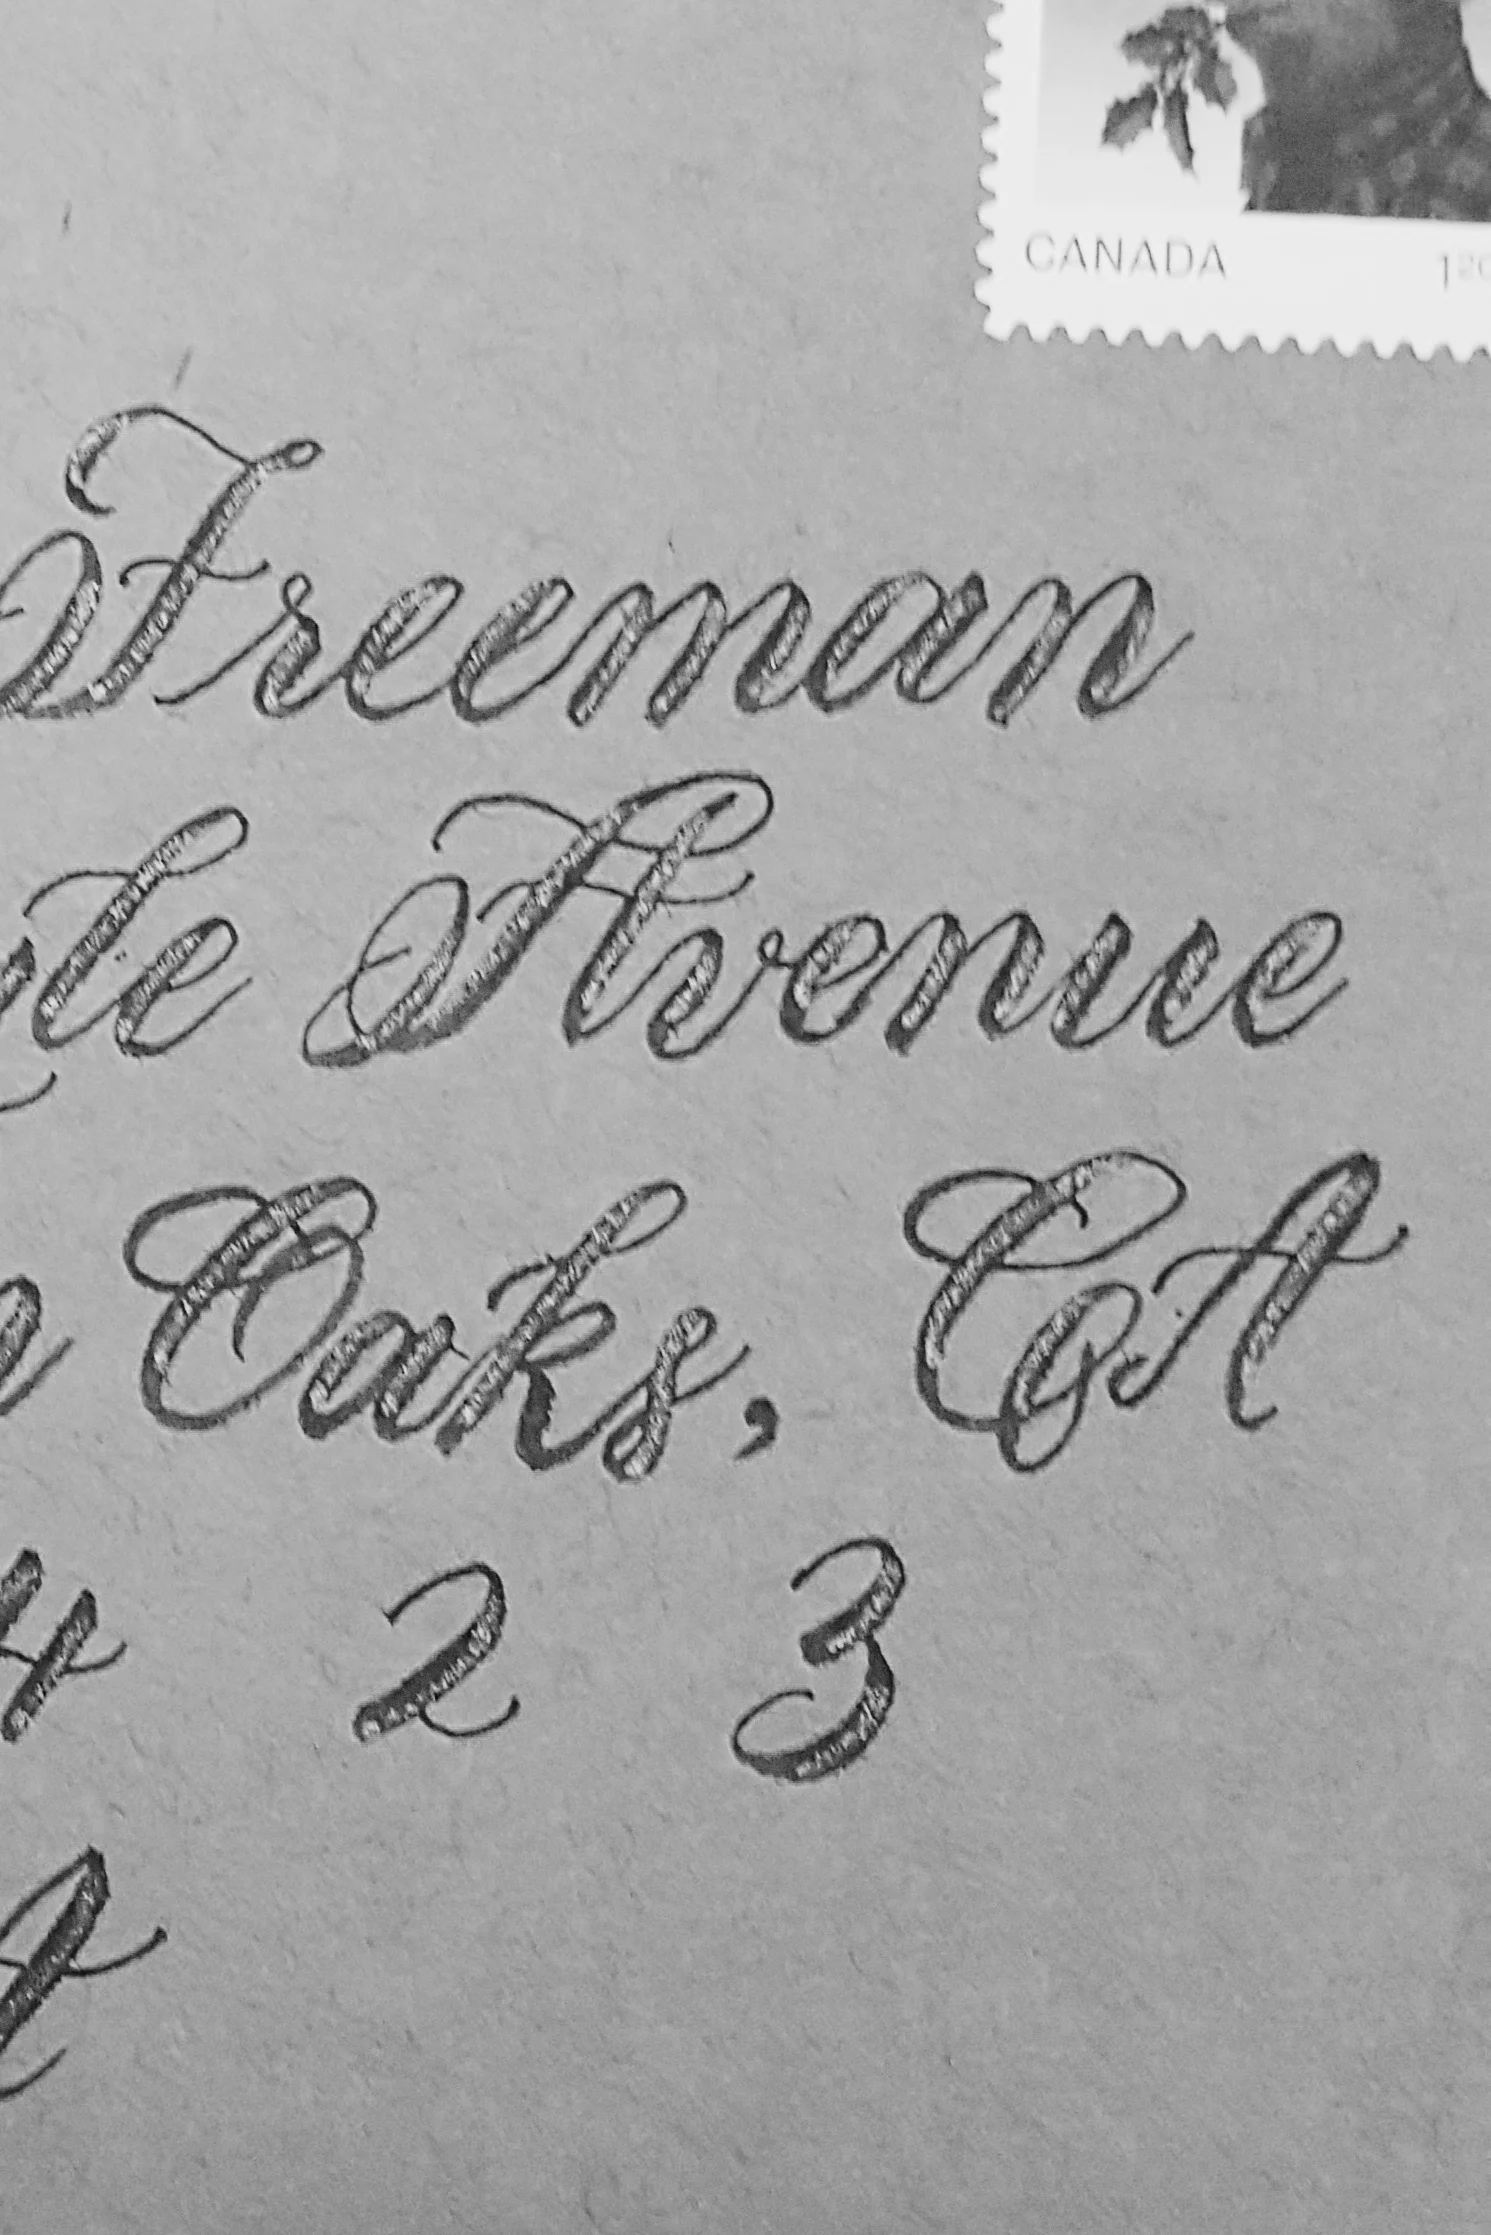 CANADA 1.20
Freeman
Avenue
Oaks, CA
4 2 3